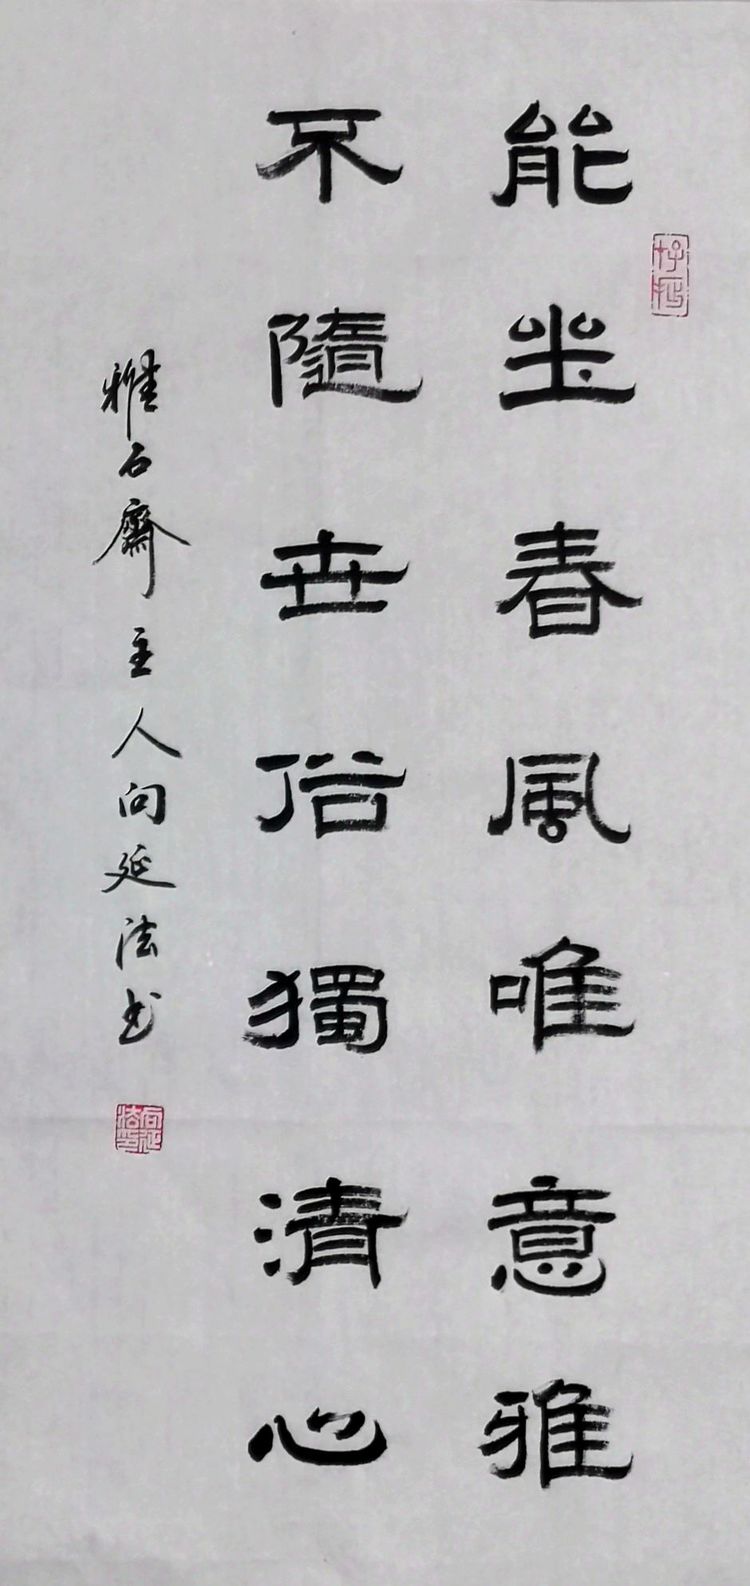 能坐春風唯意雅
不隨世俗獨清心
雅石齋主人向延法书
向延法印